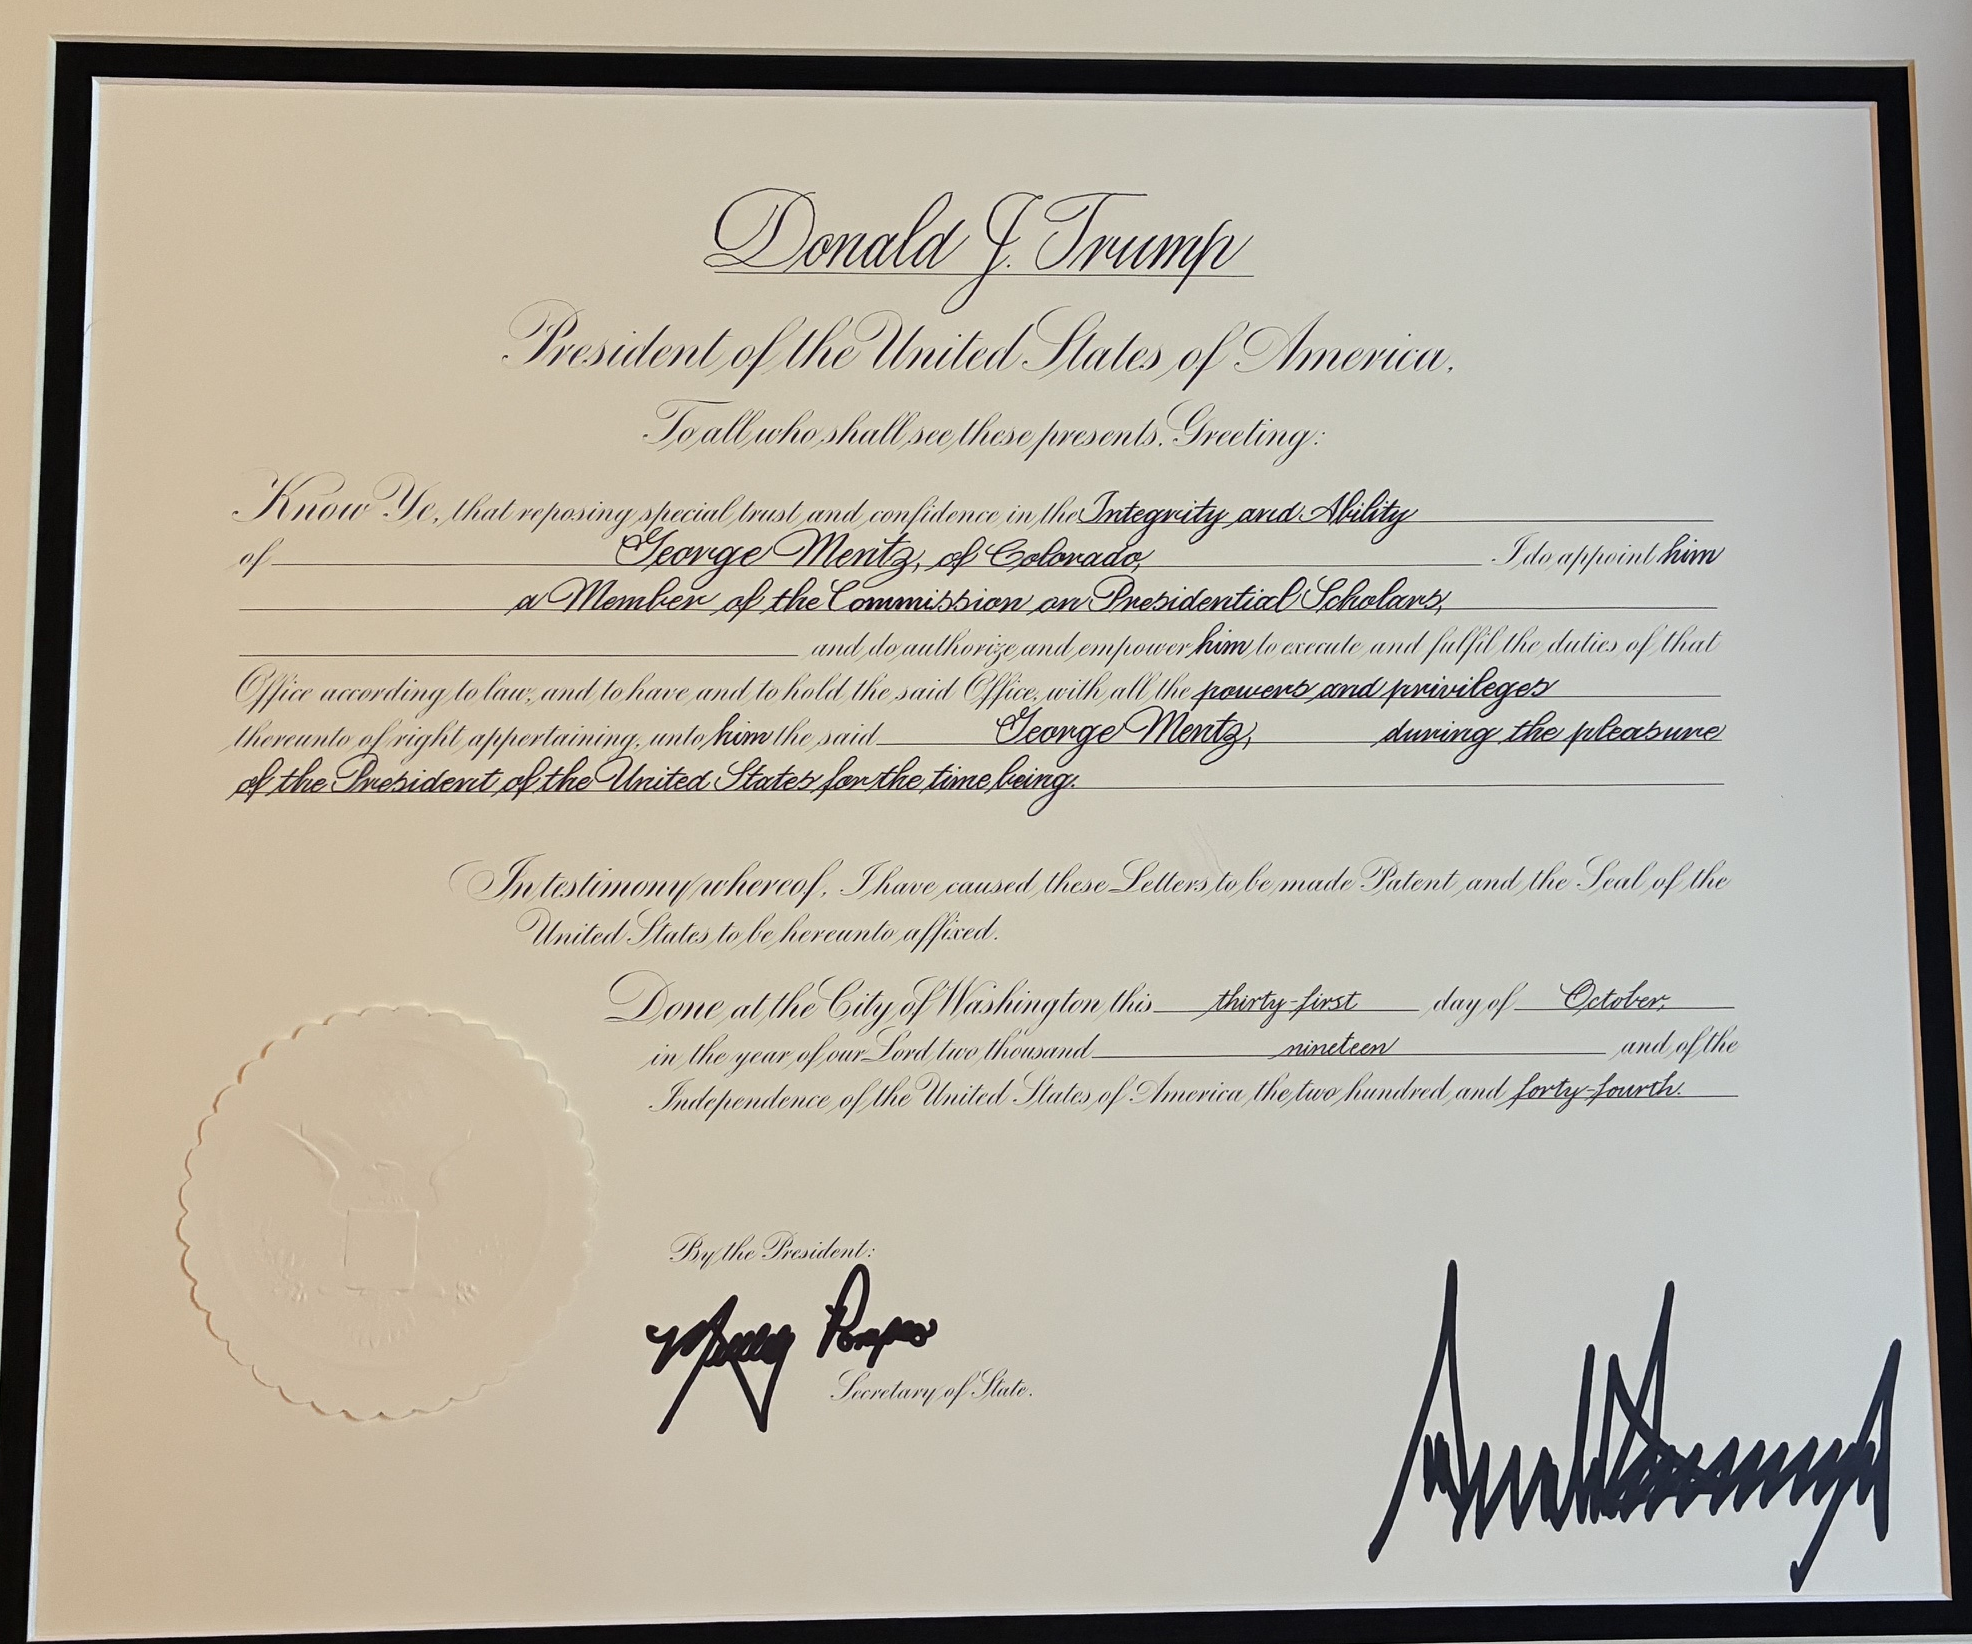 Donald J. Trump
President of the United States of America,
To all who shall see these presents, Greeting:
Know Ye, that reposing special trust and confidence in the Integrity and Ability
of George Mentz, of Colorado, I do appoint him
a Member of the Commission on Presidential Scholars,
and do authorize and empower him to execute and fulfil the duties of that
Office according to law, and to have and to hold the said Office, with all the powers and privileges
thereunto of right appertaining, unto him the said George Mentz, during the pleasure
of the President of the United States for the time being.
In testimony whereof, I have caused these Letters to be made Patent and the Seal of the
United States to be hereunto affixed.
Done at the City of Washington this thirty-first day of October,
in the year of our Lord two thousand nineteen and of the
Independence of the United States of America the two hundred and forty-fourth.
By the President:
Pompeo
Secretary of State.